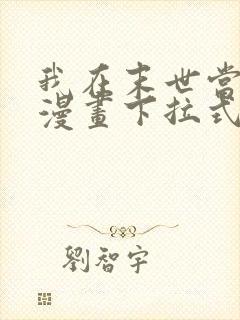 我在末世當
漫畫下拉式
劉智宇